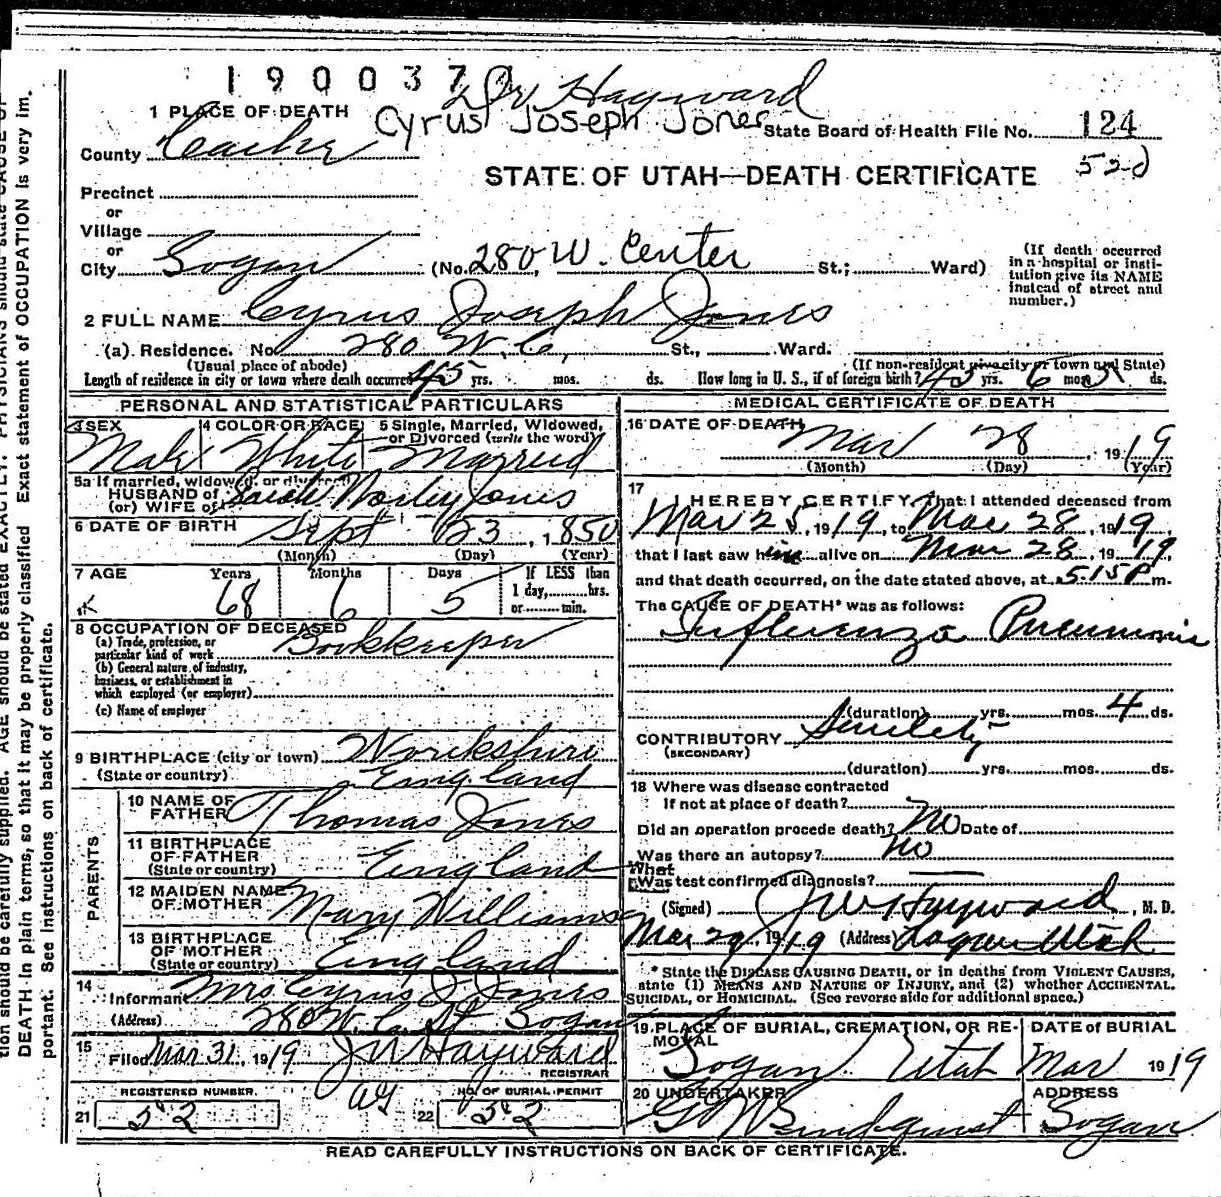 1900370
Dr Hayward
1 PLACE OF DEATH Cyrus Joseph Jones State Board of Health File No. 124
County Cache
STATE OF UTAH—DEATH CERTIFICATE 52
Precinct
or
Village
or
City Logan (No. 280 W. Center St.; Ward) (If death occurred in a hospital or institution give its NAME instead of street and number.)
2 FULL NAME Cyrus Joseph Jones
(a). Residence. No. 280 W. C. St., Ward.
(Usual place of abode) (If non-resident give city or town and State)
Length of residence in city or town where death occurred 45 yrs. mos. ds. How long in U. S., if of foreign birth? yrs. 6 mos. ds.
PERSONAL AND STATISTICAL PARTICULARS
3 SEX 4 COLOR OR RACE 5 Single, Married, Widowed, or Divorced (write the word)
Male White Married
5a If married, widowed, or divorced
HUSBAND of
(or) WIFE of Sarah Jones
6 DATE OF BIRTH Sept 23, 1850
(Month) (Day) (Year)
7 AGE Years Months Days If LESS than 1 day, hrs. or min.
68 6 5
8 OCCUPATION OF DECEASED
(a) Trade, profession, or particular kind of work Bookkeeper
(b) General nature of industry, business, or establishment in which employed (or employer)
(c) Name of employer
9 BIRTHPLACE (city or town)
(State or country) England
PARENTS
10 NAME OF FATHER Thomas Jones
11 BIRTHPLACE OF FATHER (State or country) England
12 MAIDEN NAME OF MOTHER Mary Williams
13 BIRTHPLACE OF MOTHER (State or country) England
14 Informant Mrs Cyrus J Jones
(Address) 280 W. C. St Logan
15 Filed Mar 31, 1919 J W Hayward
REGISTRAR
REGISTERED NUMBER. NO. OF BURIAL PERMIT
21 52 22 52
MEDICAL CERTIFICATE OF DEATH
16 DATE OF DEATH Mar 28, 1919
(Month) (Day) (Year)
17 I HEREBY CERTIFY, That I attended deceased from
Mar 25, 1919, to Mar 28, 1919
that I last saw him alive on Mar 28, 1919
and that death occurred, on the date stated above, at 5:15 P m.
The CAUSE OF DEATH* was as follows:
Influenza Pneumonia
(duration) yrs. mos. 4 ds.
CONTRIBUTORY Senility
(SECONDARY)
(duration) yrs. mos. ds.
18 Where was disease contracted
If not at place of death?
Did an operation precede death? No Date of
Was there an autopsy? no
What
Was test confirmed diagnosis?
(Signed) J W Hayward, M. D.
Mar 29, 1919 (Address) Logan Utah
* State the DISEASE CAUSING DEATH, or in deaths from VIOLENT CAUSES,
state (1) MEANS AND NATURE OF INJURY, and (2) whether ACCIDENTAL,
SUICIDAL, OR HOMICIDAL. (See reverse side for additional space.)
19 PLACE OF BURIAL, CREMATION, OR REMOVAL DATE of BURIAL
Logan Utah Mar 1919
20 UNDERTAKER ADDRESS
Lindquist Logan
READ CAREFULLY INSTRUCTIONS ON BACK OF CERTIFICATE.
tion should be carefully supplied. AGE should be stated EXACTLY. PHYSICIANS should state CAUSE OF
DEATH in plain terms, so that it may be properly classified. Exact statement of OCCUPATION is very im-
portant. See instructions on back of certificate.